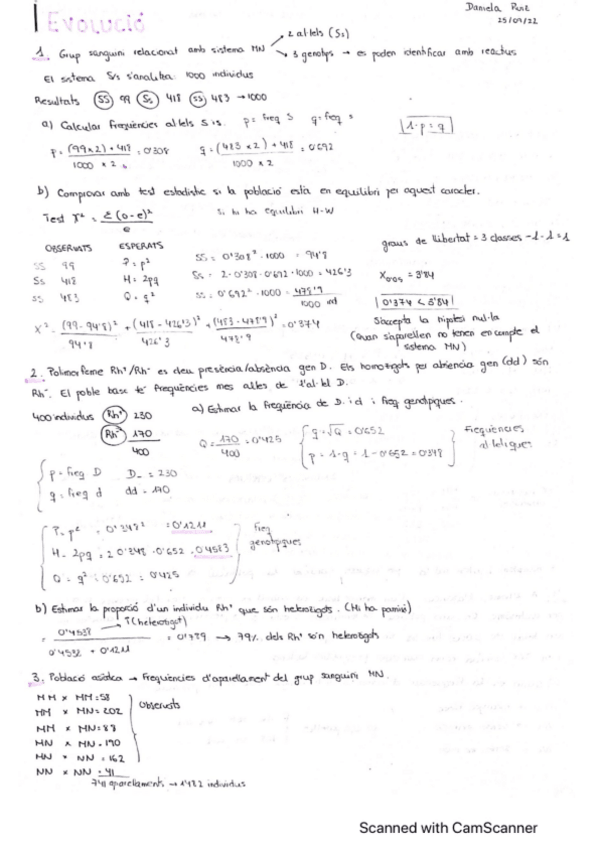 Daniela Ruiz
25/09/22
Evolució
1. Grup sanguini relacionat amb sistema MN → 2 al·lels (Ss)
→ 3 genotips → es poden identificar amb reactius
El sistema S/s s'analitza 1000 individus
Resultats SS 99 Ss 418 ss 483 → 1000
a) Calcular frequències al·lels S i s. p= freq S q= freq s 1-p=q
p = (99×2)+418 / 1000 × 2 = 0'308 q = (483×2)+418 / 1000 × 2 = 0'692
b) Comprovar amb test estadístic si la població està en equilibri per aquest caràcter.
Test χ² = Σ(o-e)² / e Si hi ha equilibri H-W
OBSERVATS ESPERATS graus de llibertat = 3 classes -1-1 = 1
SS 99 P = p² SS = 0'308² · 1000 = 94'8
Ss 418 H = 2pq Ss = 2·0'308·0'692·1000 = 426'3 X0'05 = 3'84
ss 483 Q = q² ss = 0'692² · 1000 = 478'9
1000 ind
0'374 < 3'84
X² = (99-94'8)² / 94'8 + (418-426'3)² / 426'3 + (483-478'9)² / 478'9 = 0'374
S'accepta la hipòtesi nul·la
(Quan s'aparellen no tenen en compte el
sistema MN)
2. Polimorfisme Rh⁺/Rh⁻ es deu presència/absència gen D. Els homozigots per absència gen (dd) són
Rh⁻. El poble basc té freqüències més altes de l'al·lel D.
400 individus Rh⁺ 230 a) Estimar la freqüència de D i d i freq genotípiques.
Rh⁻ 170
400
Q = 170 / 400 = 0'425 q = √Q = 0'652
p = 1-q = 1-0'652 = 0'348
Freqüències
al·lèliques
p = freq D D_ = 230
q = freq d dd = 170
P = p² = 0'348² = 0'1211
H = 2pq = 2·0'348·0'652 = 0'4583
Q = q² = 0'652 = 0'425
Freq
genotípiques
b) Estimar la proporció d'un individu Rh⁺ que són heterozigots. (Hi ha panmixi)
= 0'4538 / 0'4532 + 0'1211 = 0'789 → 79% dels Rh⁺ són heterozigots
3. Població asiàtica → Freqüències d'aparellament del grup sanguini MN.
MM × MM = 58
MM × MN = 202
MM × NN = 88
MN × MN = 190
MN × NN = 162
NN × NN = 41
Observats
741 aparellaments → 1482 individus
Scanned with CamScanner